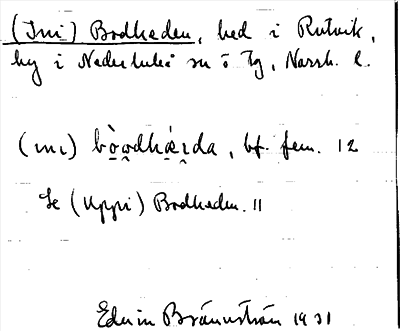 (Ini) Bodheden, hed i Rutvik,
by i Nederluleå sn ö tg, Norrb. l.
(ini) bòodhæ̀ida, bf. fem. 12
Se (Uppi) Bodheden. 11
Edvin Brännström 1931